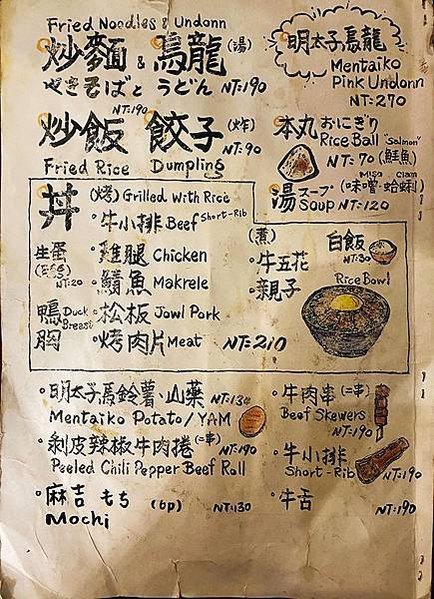 Fried Noodles & Undonn
炒麵 & 烏龍 (湯)
やきそばと うどん NT:190
明太子烏龍
Mentaiko
Pink Undonn
NT:270
NT:190
炒飯 餃子 (炸)
NT:90
Fried Rice Dumpling
本丸 おにぎり
Rice Ball "Salmon"
NT:70 (鮭魚)
湯 スープ (味噌·蛤蜊)
Miso Clam
Soup NT:120
丼 (烤) Grilled with Rice
·牛小排 Beef Short-Rib
·雞腿 Chicken
·鯖魚 Makrele
·松板 Jowl Pork
·烤肉片 Meat NT:210
生蛋
(EGG)
NT:20
鴨胸 Duck Breast
(煮)
·牛五花
·親子
白飯
NT:30
Rice Bowl
·明太子馬鈴薯·山藥 NT:130
Mentaiko Potato/YAM
·剝皮辣椒牛肉捲 (二串) NT:190
Peeled Chili Pepper Beef Roll
·麻吉 もち (6p) NT:130
Mochi
·牛肉串 (二串)
Beef Skewers
NT:190
·牛小排
Short-Rib NT:190
·牛舌 NT:190